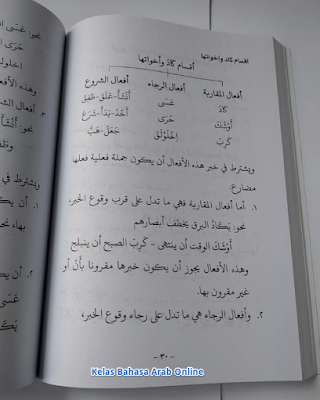 أقسام كاد وأخواتها
أقسام كَادَ وأخواتها
أفعال المقاربة أفعال الرجاء أفعال الشروع
كَادَ عَسَى أَنْشَأَ-عَلَقَ-طَفِقَ
أَوْشَكَ حَرَى أَخَذَ-بَدَأَ-شَرَعَ
كَرَبَ اخْلَوْلَقَ جَعَلَ-هَبَّ
ويشترط في خبر هذه الأفعال أن يكون جملة فعلية فعلها
مضارع.
١. أما أفعال المقاربة فهي ما تدل على قرب وقوع الخبر،
نحو: يَكَادُ البرق يخطف أبصارهم
أَوْشَكَ الوقت أن ينتهى - كَرَبَ الصبح أن ينبلج
وهذه الأفعال يجوز أن يكون خبرها مقرونا بأَنْ أو
غير مقرون بها.
٢. وأفعال الرجاء هي ما تدل على رجاء وقوع الخبر،
-٣٠-
نحو: عَسَى
حَرَى
اخلولق
وهذه الأفعال
٣. أفعال الشر
نحو: أَنْشَأَ
١. أن يكو
بهاء نحو
٢. أن
عَسَى
يَكَا
Kelas Bahasa Arab Online